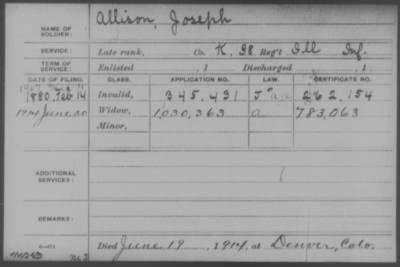 NAME OF SOLDIER: Allison, Joseph
SERVICE: Late rank, Co. K, 38 Reg't Ill Inf.
TERM OF SERVICE: Enlisted , 1 Discharged , 1
DATE OF FILING. CLASS. APPLICATION NO. LAW. CERTIFICATE NO.
1880, Feb 14 Invalid, 345.431 262.154
1914 June 30 Widow, 1,030,363 a 783,063
Minor,
ADDITIONAL SERVICES:
REMARKS:
Died June 19, 1914, at Denver, Colo.